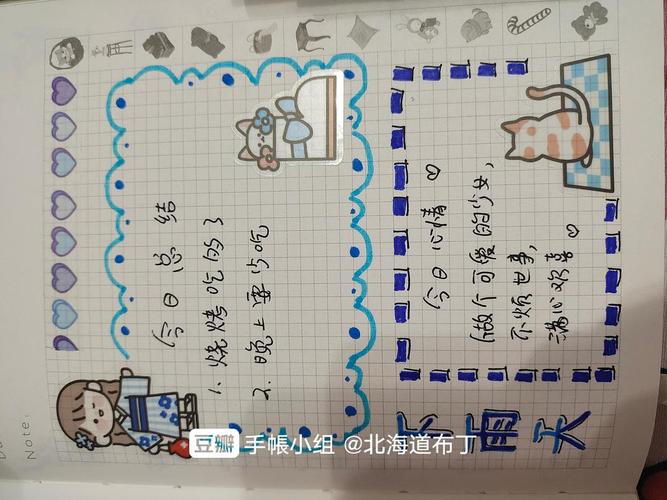 Note:
下雨天
今日总结
1. 烧烤吃
2. 晚上要少吃
今日心情♡
做个可爱的少女,
不烦世事,
满心欢喜♡
豆瓣 手帐小组 @北海道布丁